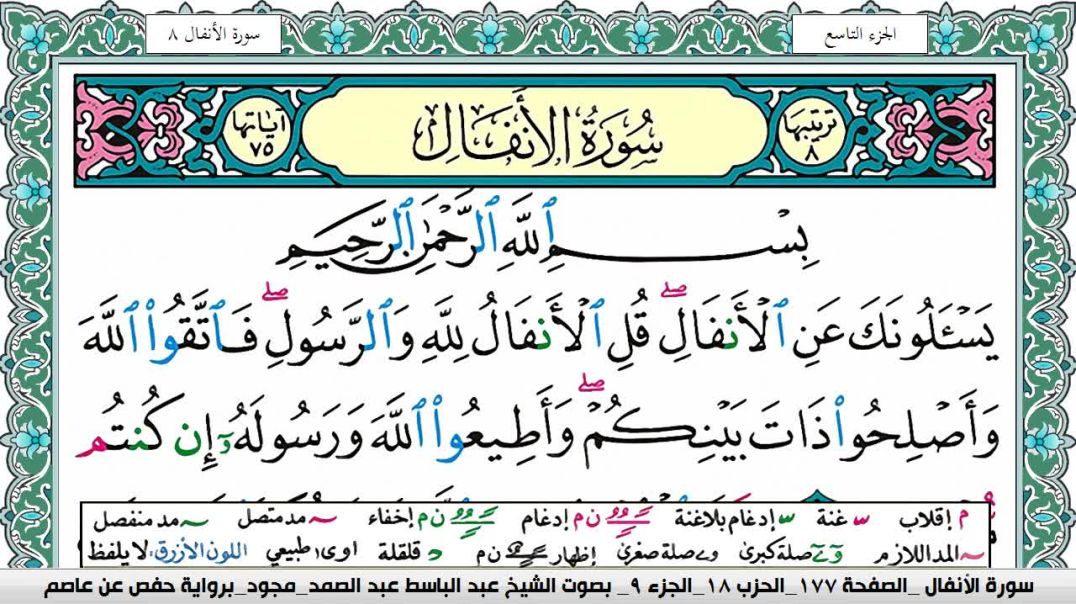 الجزء التاسع
سورة الأنفال ٨
ترتيبها ٨
سُورَةُ الأَنفَالِ
آياتها ٧٥
بِسْمِ ٱللَّهِ ٱلرَّحْمَٰنِ ٱلرَّحِيمِ
يَسْـَٔلُونَكَ عَنِ ٱلْأَنفَالِ ۖ قُلِ ٱلْأَنفَالُ لِلَّهِ وَٱلرَّسُولِ ۖ فَٱتَّقُوا۟ ٱللَّهَ
وَأَصْلِحُوا۟ ذَاتَ بَيْنِكُمْ ۖ وَأَطِيعُوا۟ ٱللَّهَ وَرَسُولَهُۥٓ إِن كُنتُم
م إقلاب س غنة س إدغام بلاغنة ن م إدغام ن م إخفاء مد متصل مد منفصل
المد اللازم صلة كبرى صلة صغرى إظهار ن م د قلقلة اوى طبيعي اللون الأزرق: لا يلفظ
سورة الأنفال _الصفحة ١٧٧_ الحزب ١٨_الجزء ٩_ بصوت الشيخ عبد الباسط عبد الصمد_مجود_برواية حفص عن عاصم